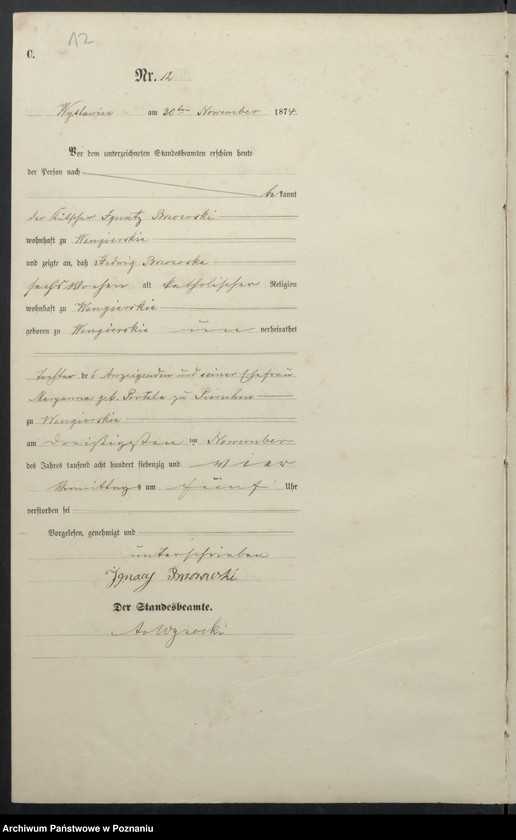 12
C.
Nr. 12
am 30ten November 1874.
Vor dem unterzeichneten Standesbeamten erschien heute
der Person nach
bekannt
der Kutscher Ignatz
wohnhaft zu Wengierskie
und zeigte an, daß Hedwig
sechs Wochen alt katholischer Religion
wohnhaft zu Wengierskie
geboren zu Wengierskie un verheirathet
Tochter des Anzeigenden und seiner Ehefrau
Maryanna geb. zu
zu Wengierskie
am dreißigsten ten November
des Jahres tausend acht hundert siebenzig und vier
Vormittags um fünf Uhr
verstorben sei
Vorgelesen, genehmigt und
unterschrieben
Ignacy
Der Standesbeamte.
Archiwum Państwowe w Poznaniu